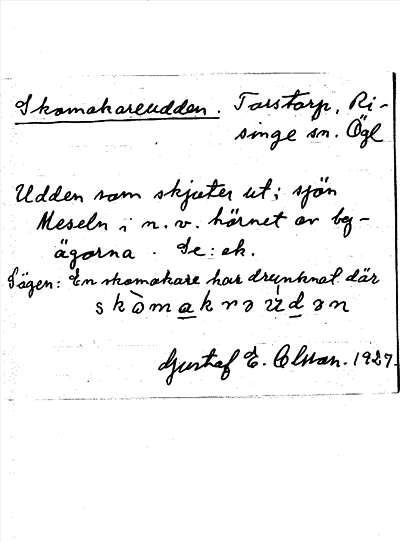 Skomakareudden. Torstorp, Ri-
singe sn. Ögl
Udden som skjuter ut i sjön
Meseln i n.v. hörnet av beb-
ägorna. Se: ek.
Sägen: En skomakare har drunknat där
skòmakrəùdən
Gustaf E. Olsson. 1927.